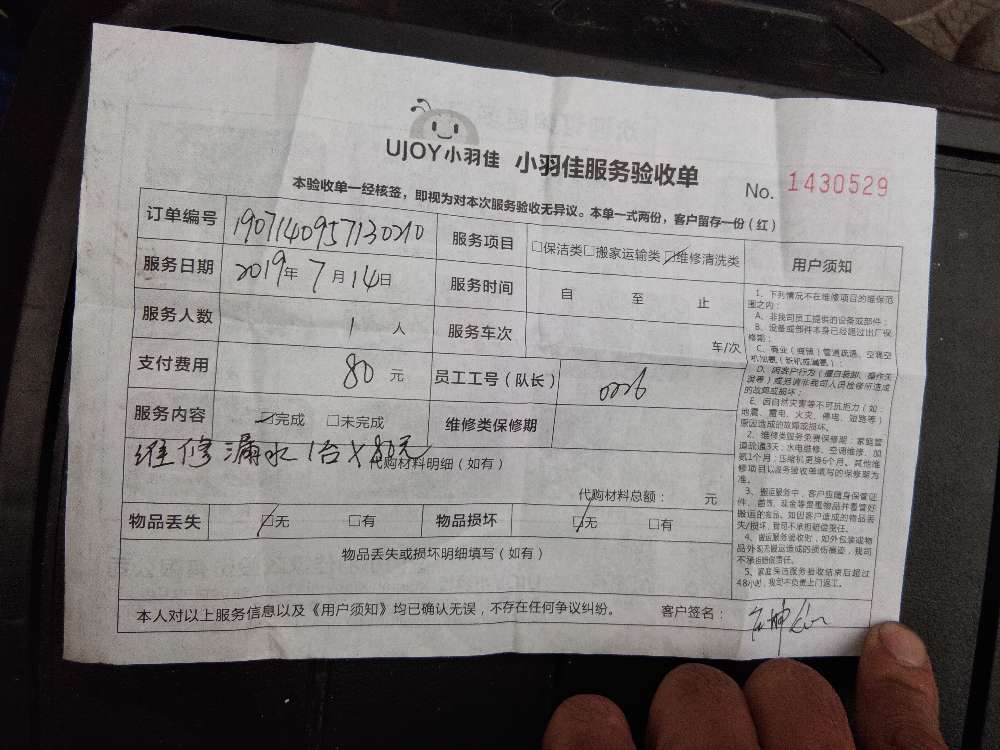 UJOY小羽佳 小羽佳服务验收单 No. 1430529
本验收单一经核签，即视为对本次服务验收无异议。本单一式两份，客户留存一份（红）
订单编号 1907140957130210 服务项目 □保洁类□搬家运输类☑维修清洗类 用户须知
服务日期 2019年 7月 14日 服务时间 自 至 止
服务人数 1 人 服务车次 车/次
支付费用 80 元 员工工号（队长） 0026
服务内容 ☑完成 □未完成 维修类保修期
维修漏水1台×80元
代购材料明细（如有）
代购材料总额： 元
物品丢失 ☑无 □有 物品损坏 ☑无 □有
物品丢失或损坏明细填写（如有）
本人对以上服务信息以及《用户须知》均已确认无误，不存在任何争议纠纷。 客户签名：
1、下列情况不在维修项目的维保范
围之内：
A、非我司员工提供的设备或部件；
B、设备或部件本身已经超过出厂保
修期；
C、商业（商铺）管道疏通、空调空
D、因客户行为（擅自装卸、操作失
误等）或邀请非我司人员检修所造成
的故障或损坏；
E、因自然灾害等不可抗拒力（如：
地震、雷电、火灾、停电、短路等）
原因造成的故障或损坏。
2、维修类服务免费保修期：家庭管
道疏通3天；水电维修、空调维修、加
氨1个月；压缩机更换6个月。其他维
修项目以服务验收单填写的保修期为
准。
3、搬运服务中，客户应随身保管证
件、首饰、现金等贵重物品并看管好
搬运的物品。如因客户造成的物品丢
失/损坏，我司不承担赔偿责任。
4、搬运服务验收时，如外包装或物
品外表无搬运造成的损伤痕迹，我司
不承担赔偿责任。
5、家庭保洁服务验收结束后超过
48小时，我司不负责上门返工。